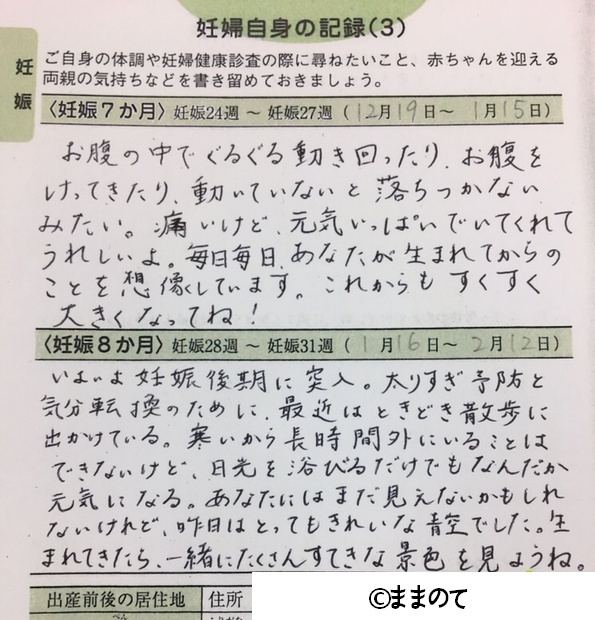 妊婦自身の記録(3)
妊娠
ご自身の体調や妊婦健康診査の際に尋ねたいこと、赤ちゃんを迎える
両親の気持ちなどを書き留めておきましょう。
〈妊娠7か月〉妊娠24週 ~ 妊娠27週 ( 12月19日~ 1月15日)
お腹の中でぐるぐる動き回ったり、お腹を
けってきたり、動いていないと落ちつかない
みたい。痛いけど、元気いっぱいでいてくれて
うれしいよ。毎日毎日、あなたが生まれてからの
ことを想像しています。これからもすくすく
大きくなってね!
〈妊娠8か月〉妊娠28週 ~ 妊娠31週 ( 1月16日~ 2月12日)
いよいよ妊娠後期に突入。太りすぎ予防と
気分転換のために、最近はときどき散歩に
出かけている。寒いから長時間外にいることは
できないけど、日光を浴びるだけでもなんだか
元気になる。あなたにはまだ見えないかもしれ
ないけれど、昨日はとってもきれいな青空でした。生
まれてきたら、一緒にたくさんすてきな景色を見ようね。
出産前後の居住地 住所
©ままのて